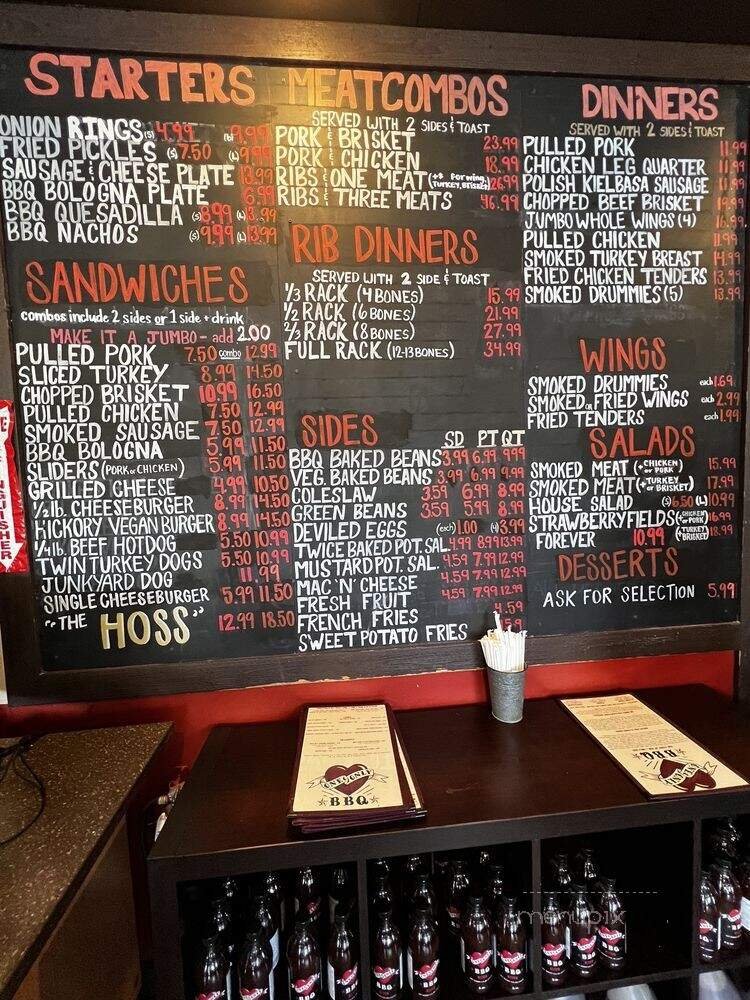 STARTERS
ONION RINGS (S) 4.99 (L) 9.99
FRIED PICKLES (S) 7.50 (L) 9.99
SAUSAGE & CHEESE PLATE 13.99
BBQ BOLOGNA PLATE 6.99
BBQ QUESADILLA (S) 8.99 (L) 13.99
BBQ NACHOS (S) 9.99 (L) 13.99
SANDWICHES
combos include 2 sides or 1 side + drink
MAKE IT A JUMBO - add 2.00
PULLED PORK 7.50 combo 12.99
SLICED TURKEY 8.99 14.50
CHOPPED BRISKET 10.99 16.50
PULLED CHICKEN 7.50 12.99
SMOKED SAUSAGE 7.50 12.99
BBQ BOLOGNA 5.99 11.50
SLIDERS (PORK or CHICKEN) 5.99 11.50
GRILLED CHEESE 4.99 10.50
1/2 lb. CHEESEBURGER 8.99 14.50
HICKORY VEGAN BURGER 8.99 14.50
1/4 lb. BEEF HOTDOG 5.50 10.99
TWIN TURKEY DOGS 5.50 10.99
JUNKYARD DOG 11.99
SINGLE CHEESEBURGER 5.99 11.50
"THE HOSS" 12.99 18.50
MEATCOMBOS
SERVED WITH 2 SIDES & TOAST
PORK & BRISKET 23.99
PORK & CHICKEN 18.99
RIBS & ONE MEAT (+$ for wing, TURKEY, BRISKET) 26.99
RIBS & THREE MEATS 46.99
RIB DINNERS
SERVED WITH 2 SIDE & TOAST
1/3 RACK (4 BONES) 15.99
1/2 RACK (6 BONES) 21.99
2/3 RACK (8 BONES) 27.99
FULL RACK (12-13 BONES) 34.99
SIDES
SD PT QT
BBQ BAKED BEANS 3.99 6.99 9.99
VEG. BAKED BEANS 3.99 6.99 9.99
COLESLAW 3.59 6.99 8.99
GREEN BEANS 3.59 5.99 8.99
DEVILED EGGS (each) 1.00 (4) 3.99
TWICE BAKED POT. SAL. 4.99 8.99 13.99
MUSTARD POT. SAL. 4.59 7.99 12.99
MAC 'N' CHEESE 4.59 7.99 12.99
FRESH FRUIT 4.59 7.99 12.99
FRENCH FRIES 4.59
SWEET POTATO FRIES
DINNERS
SERVED WITH 2 SIDES & TOAST
PULLED PORK 11.99
CHICKEN LEG QUARTER 11.99
POLISH KIELBASA SAUSAGE 11.99
CHOPPED BEEF BRISKET 19.99
JUMBO WHOLE WINGS (4) 16.99
PULLED CHICKEN 11.99
SMOKED TURKEY BREAST 14.99
FRIED CHICKEN TENDERS 13.99
SMOKED DRUMMIES (5) 13.99
WINGS
SMOKED DRUMMIES each 1.69
SMOKED or FRIED WINGS each 2.99
FRIED TENDERS each 1.99
SALADS
SMOKED MEAT (+ CHICKEN or PORK) 15.99
SMOKED MEAT (+ TURKEY or BRISKET) 17.99
HOUSE SALAD (S) 6.50 (L) 10.99
STRAWBERRY FIELDS (CHICKEN or PORK) 16.99
FOREVER 10.99 (+ TURKEY BRISKET) 18.99
DESSERTS
ASK FOR SELECTION 5.99
BBQ
BBQ
menupix